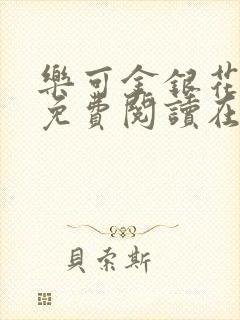 樂可金銀花
免費閱讀在
貝索斯